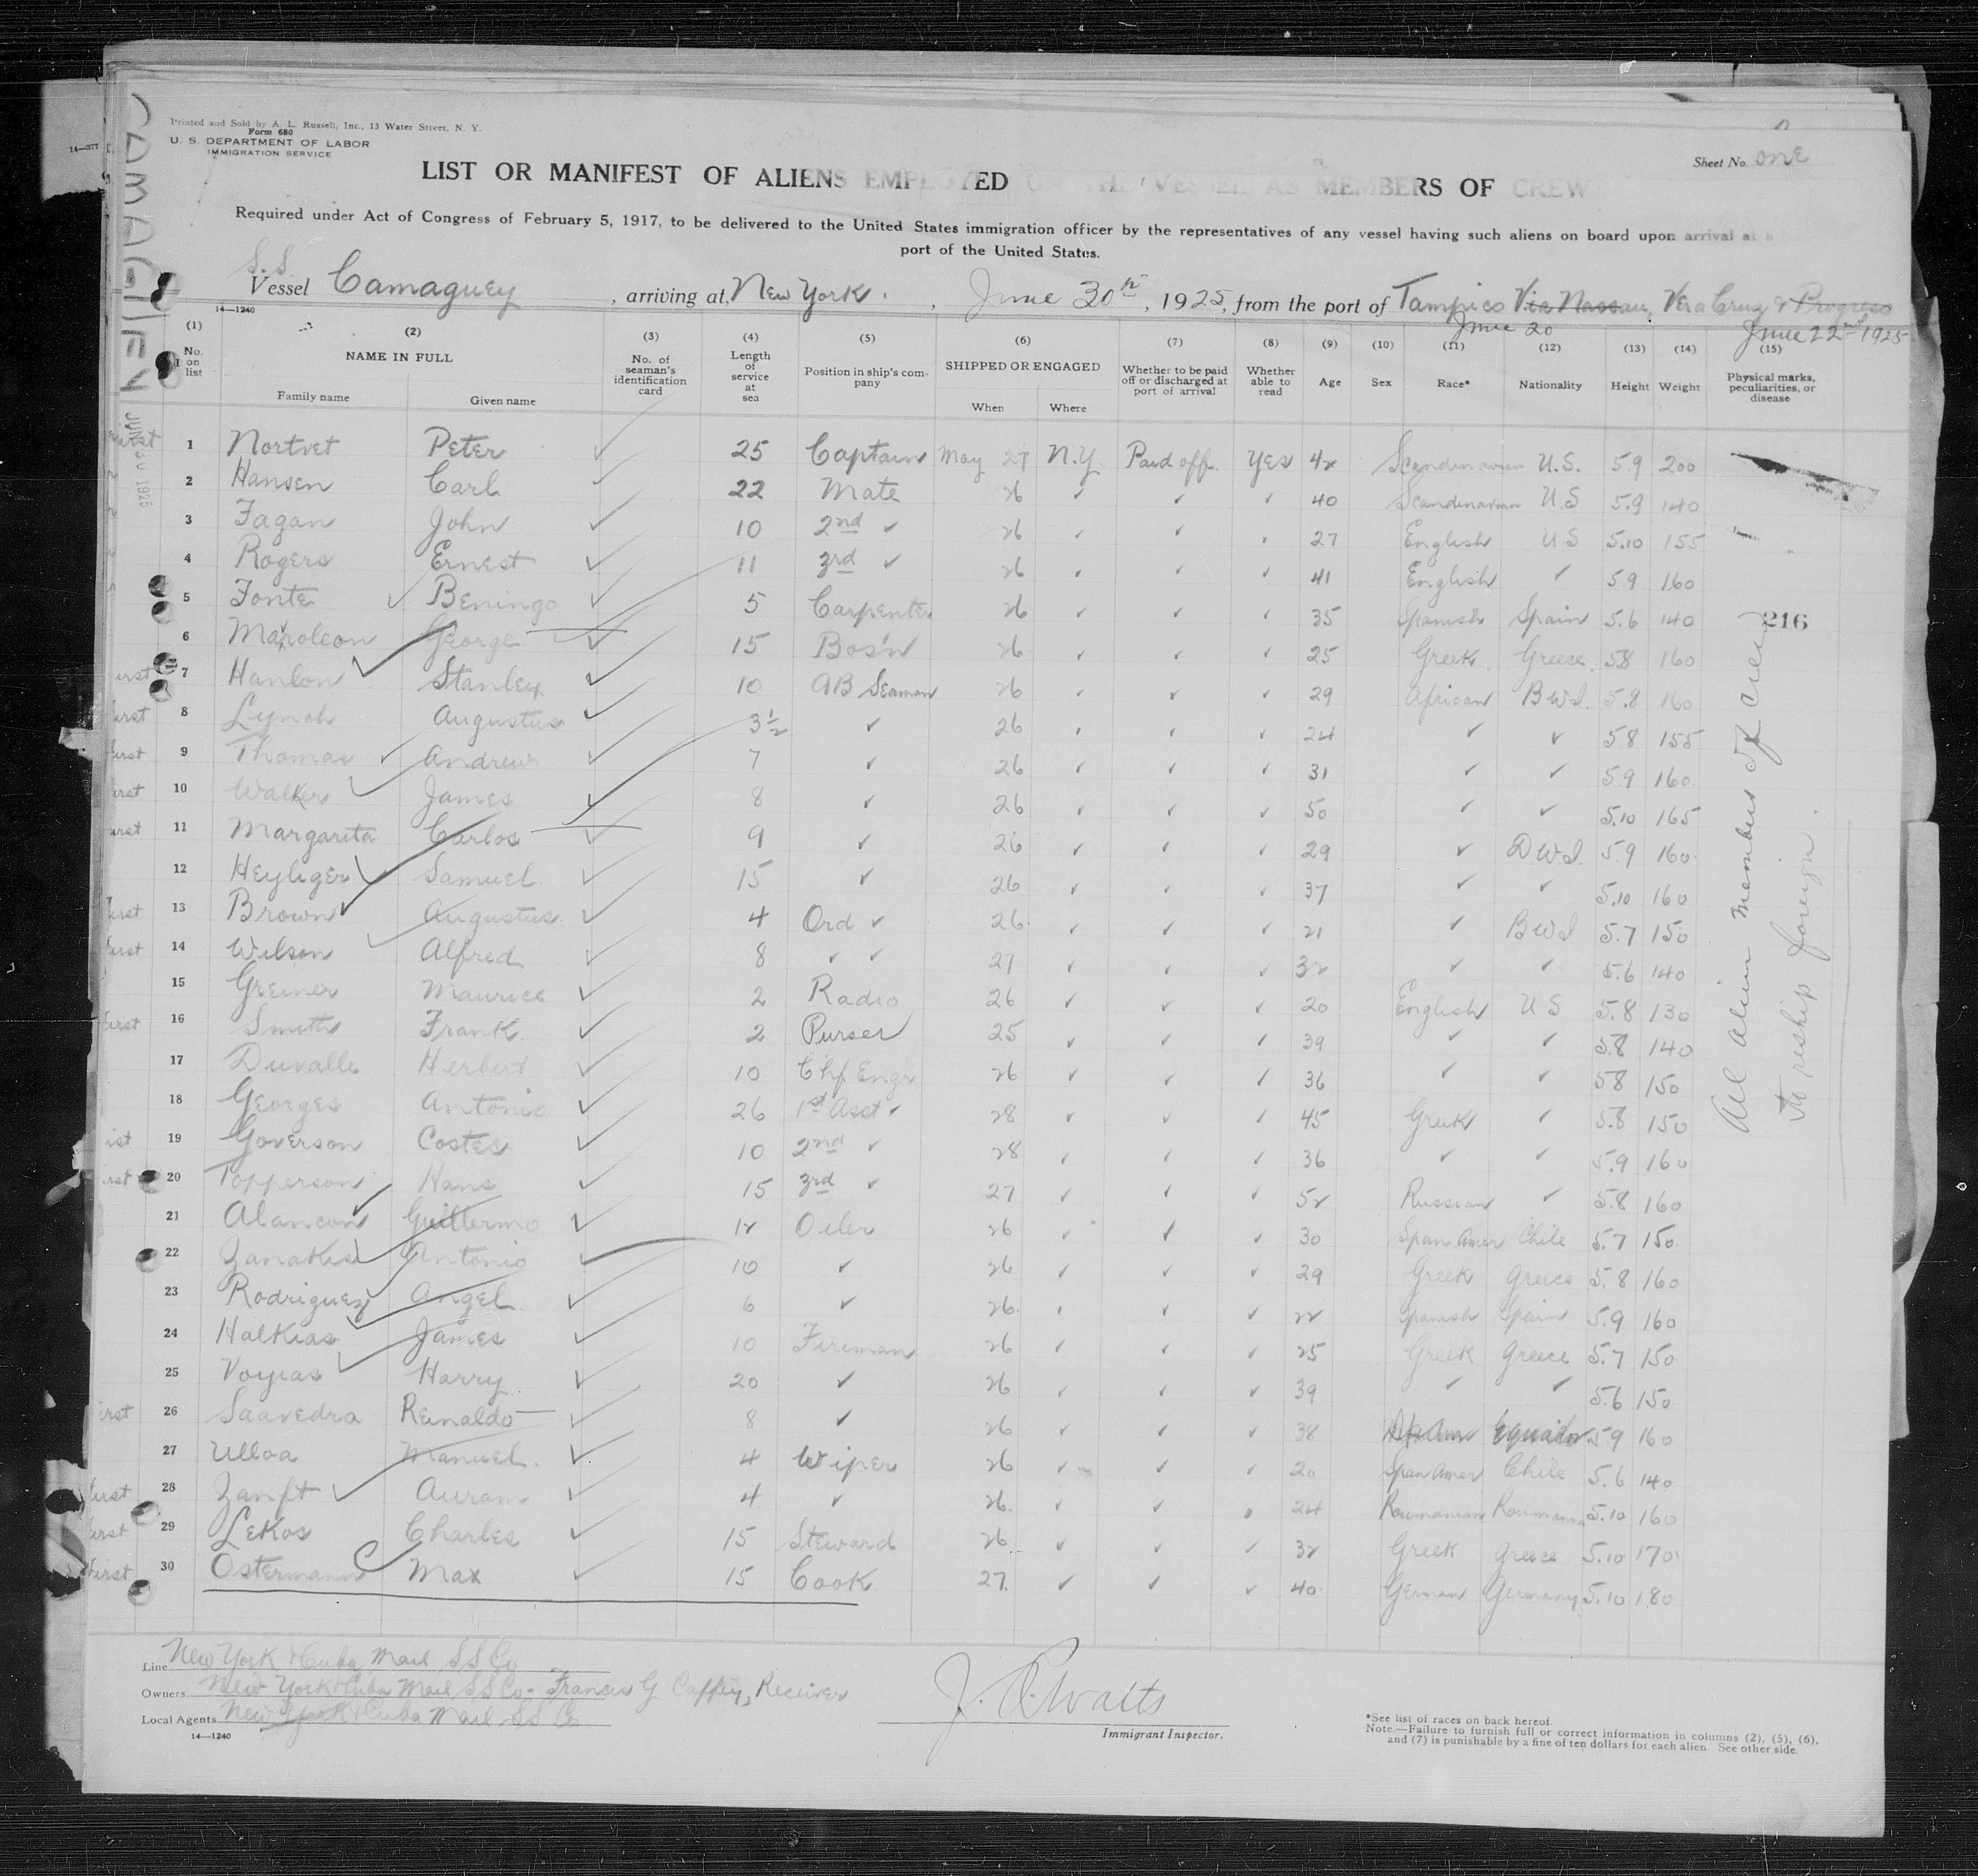 Printed and Sold by A. L. Russell, Inc., 13 Water Street, N. Y.
Form 680
U. S. DEPARTMENT OF LABOR
IMMIGRATION SERVICE
14—377
CAMAGUEY
JUN 30 1925
Sheet No. one
LIST OR MANIFEST OF ALIENS EMPLOYED ON THE VESSEL AS MEMBERS OF CREW
Required under Act of Congress of February 5, 1917, to be delivered to the United States immigration officer by the representatives of any vessel having such aliens on board upon arrival at a
port of the United States.
S.S.
Vessel Camaguey, arriving at, New York, June 30th, 1925, from the port of Tampico Via Nassau, Vera Cruz & Progreso
June 20 June 22nd 1925
14—1240
(1) (2) (3) (4) (5) (6) (7) (8) (9) (10) (11) (12) (13) (14) (15)
No. on list NAME IN FULL Family name Given name No. of seaman's identification card Length of service at sea Position in ship's company SHIPPED OR ENGAGED When Where Whether to be paid off or discharged at port of arrival Whether able to read Age Sex Race* Nationality Height Weight Physical marks, peculiarities, or disease
1 Nortvet Peter ✓ 25 Captain May 27 N.Y. Paid off. Yes 42 Scandinavian U.S. 5.9 200
2 Hansen Carl ✓ 22 Mate 26 ✓ ✓ ✓ 40 Scandinavian U.S 5.9 140
3 Fagan John ✓ 10 2nd ✓ 26 ✓ ✓ ✓ 27 English U S 5.10 155
4 Rogers Ernest ✓ 11 3rd ✓ 26 ✓ ✓ ✓ 41 English ✓ 5.9 160
5 Fonte Beningo ✓ 5 Carpenter 26 ✓ ✓ ✓ 35 Spanish Spain 5.6 140
6 George ✓ 15 Bos'n 26 ✓ ✓ ✓ 25 Greek Greece 5.8 160
7 Hanlon Stanley ✓ 10 AB Seaman 26 ✓ ✓ ✓ 29 African B.W.I. 5.8 160
8 Lynch Augustus ✓ 3½ ✓ 26 ✓ ✓ ✓ 24 ✓ ✓ 5.8 155
9 Thomas Andrew ✓ 7 ✓ 26 ✓ ✓ ✓ 31 ✓ ✓ 5.9 160
10 Walker James ✓ 8 ✓ 26 ✓ ✓ ✓ 50 ✓ ✓ 5.10 165
11 Margarita Carlos ✓ 9 ✓ 26 ✓ ✓ ✓ 29 ✓ D.W.I. 5.9 160
12 Heyliger Samuel ✓ 15 ✓ 26 ✓ ✓ ✓ 37 ✓ ✓ 5.10 160
13 Brown Augustus ✓ 4 Ord ✓ 26 ✓ ✓ ✓ 21 ✓ B W I 5.7 150
14 Wilson Alfred ✓ 8 ✓ ✓ 27 ✓ ✓ ✓ 32 ✓ ✓ 5.6 140
15 Greiner Maurice ✓ 2 Radio 26 ✓ ✓ ✓ 20 English U S 5.8 130
16 Smith Frank ✓ 2 Purser 25 ✓ ✓ ✓ 39 ✓ ✓ 5.8 140
17 Duvalle Herbert ✓ 10 Chf Engr 26 ✓ ✓ ✓ 36 ✓ ✓ 5.8 150
18 Georges Antonio ✓ 26 1st Asst ✓ 28 ✓ ✓ ✓ 45 Greek ✓ 5.8 150
19 Goverson Costes ✓ 10 2nd ✓ 28 ✓ ✓ ✓ 36 ✓ ✓ 5.9 160
20 Topperson Hans ✓ 15 3rd ✓ 27 ✓ ✓ ✓ 52 Russian ✓ 5.8 160
21 Alancon Guillermo ✓ 12 Oiler 26 ✓ ✓ ✓ 30 Span Amer Chile 5.7 150
22 Zanakis Antonio ✓ 10 ✓ 26 ✓ ✓ ✓ 29 Greek Greece 5.8 160
23 Rodriguez Angel ✓ 6 ✓ 26 ✓ ✓ ✓ 22 Spanish Spain 5.9 160
24 Halkias James ✓ 10 Fireman 26 ✓ ✓ ✓ 25 Greek Greece 5.7 150
25 Voyias Harry ✓ 20 ✓ 26 ✓ ✓ ✓ 39 ✓ ✓ 5.6 150
26 Saavedra Reinaldo ✓ 8 ✓ 26 ✓ ✓ ✓ 38 5.9 160
27 Ulloa Manuel ✓ 4 Wiper 26 ✓ ✓ ✓ 20 Span Amer Chile 5.6 140
28 Zanft Auram ✓ 4 ✓ 26 ✓ ✓ 24 Roumanian Roumania 5.10 160
29 Lekos Charles ✓ 15 Steward 26 ✓ ✓ ✓ 32 Greek Greece 5.10 170
30 Ostermann Max ✓ 15 Cook 27 ✓ ✓ ✓ 40 German Germany 5.10 180
216
All alien members of crew
to reship foreign.
Line New York & Cuba Mail S S Co
Owners New York & Cuba Mail S S Co - Francis G Caffey, Receiver
Local Agents New York & Cuba Mail S S Co
14—1240
J. Watts
Immigrant Inspector.
*See list of races on back hereof.
Note.—Failure to furnish full or correct information in columns (2), (5), (6),
and (7) is punishable by a fine of ten dollars for each alien. See other side.